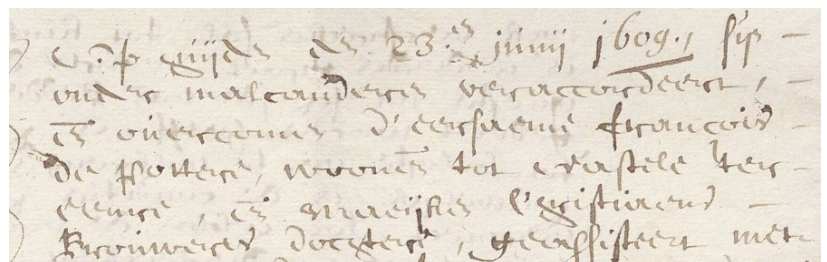 Op huijden den 23.en Junij 1609., sijn
onder malcanderen veraccordeert,
en̄ overcomen d'eersaeme Francoijs
de Pottere, woonen̄ tot Casteele ter
eenre, en̄ Maeijken Christiaens
Brouwers dochtere, geassisteert met